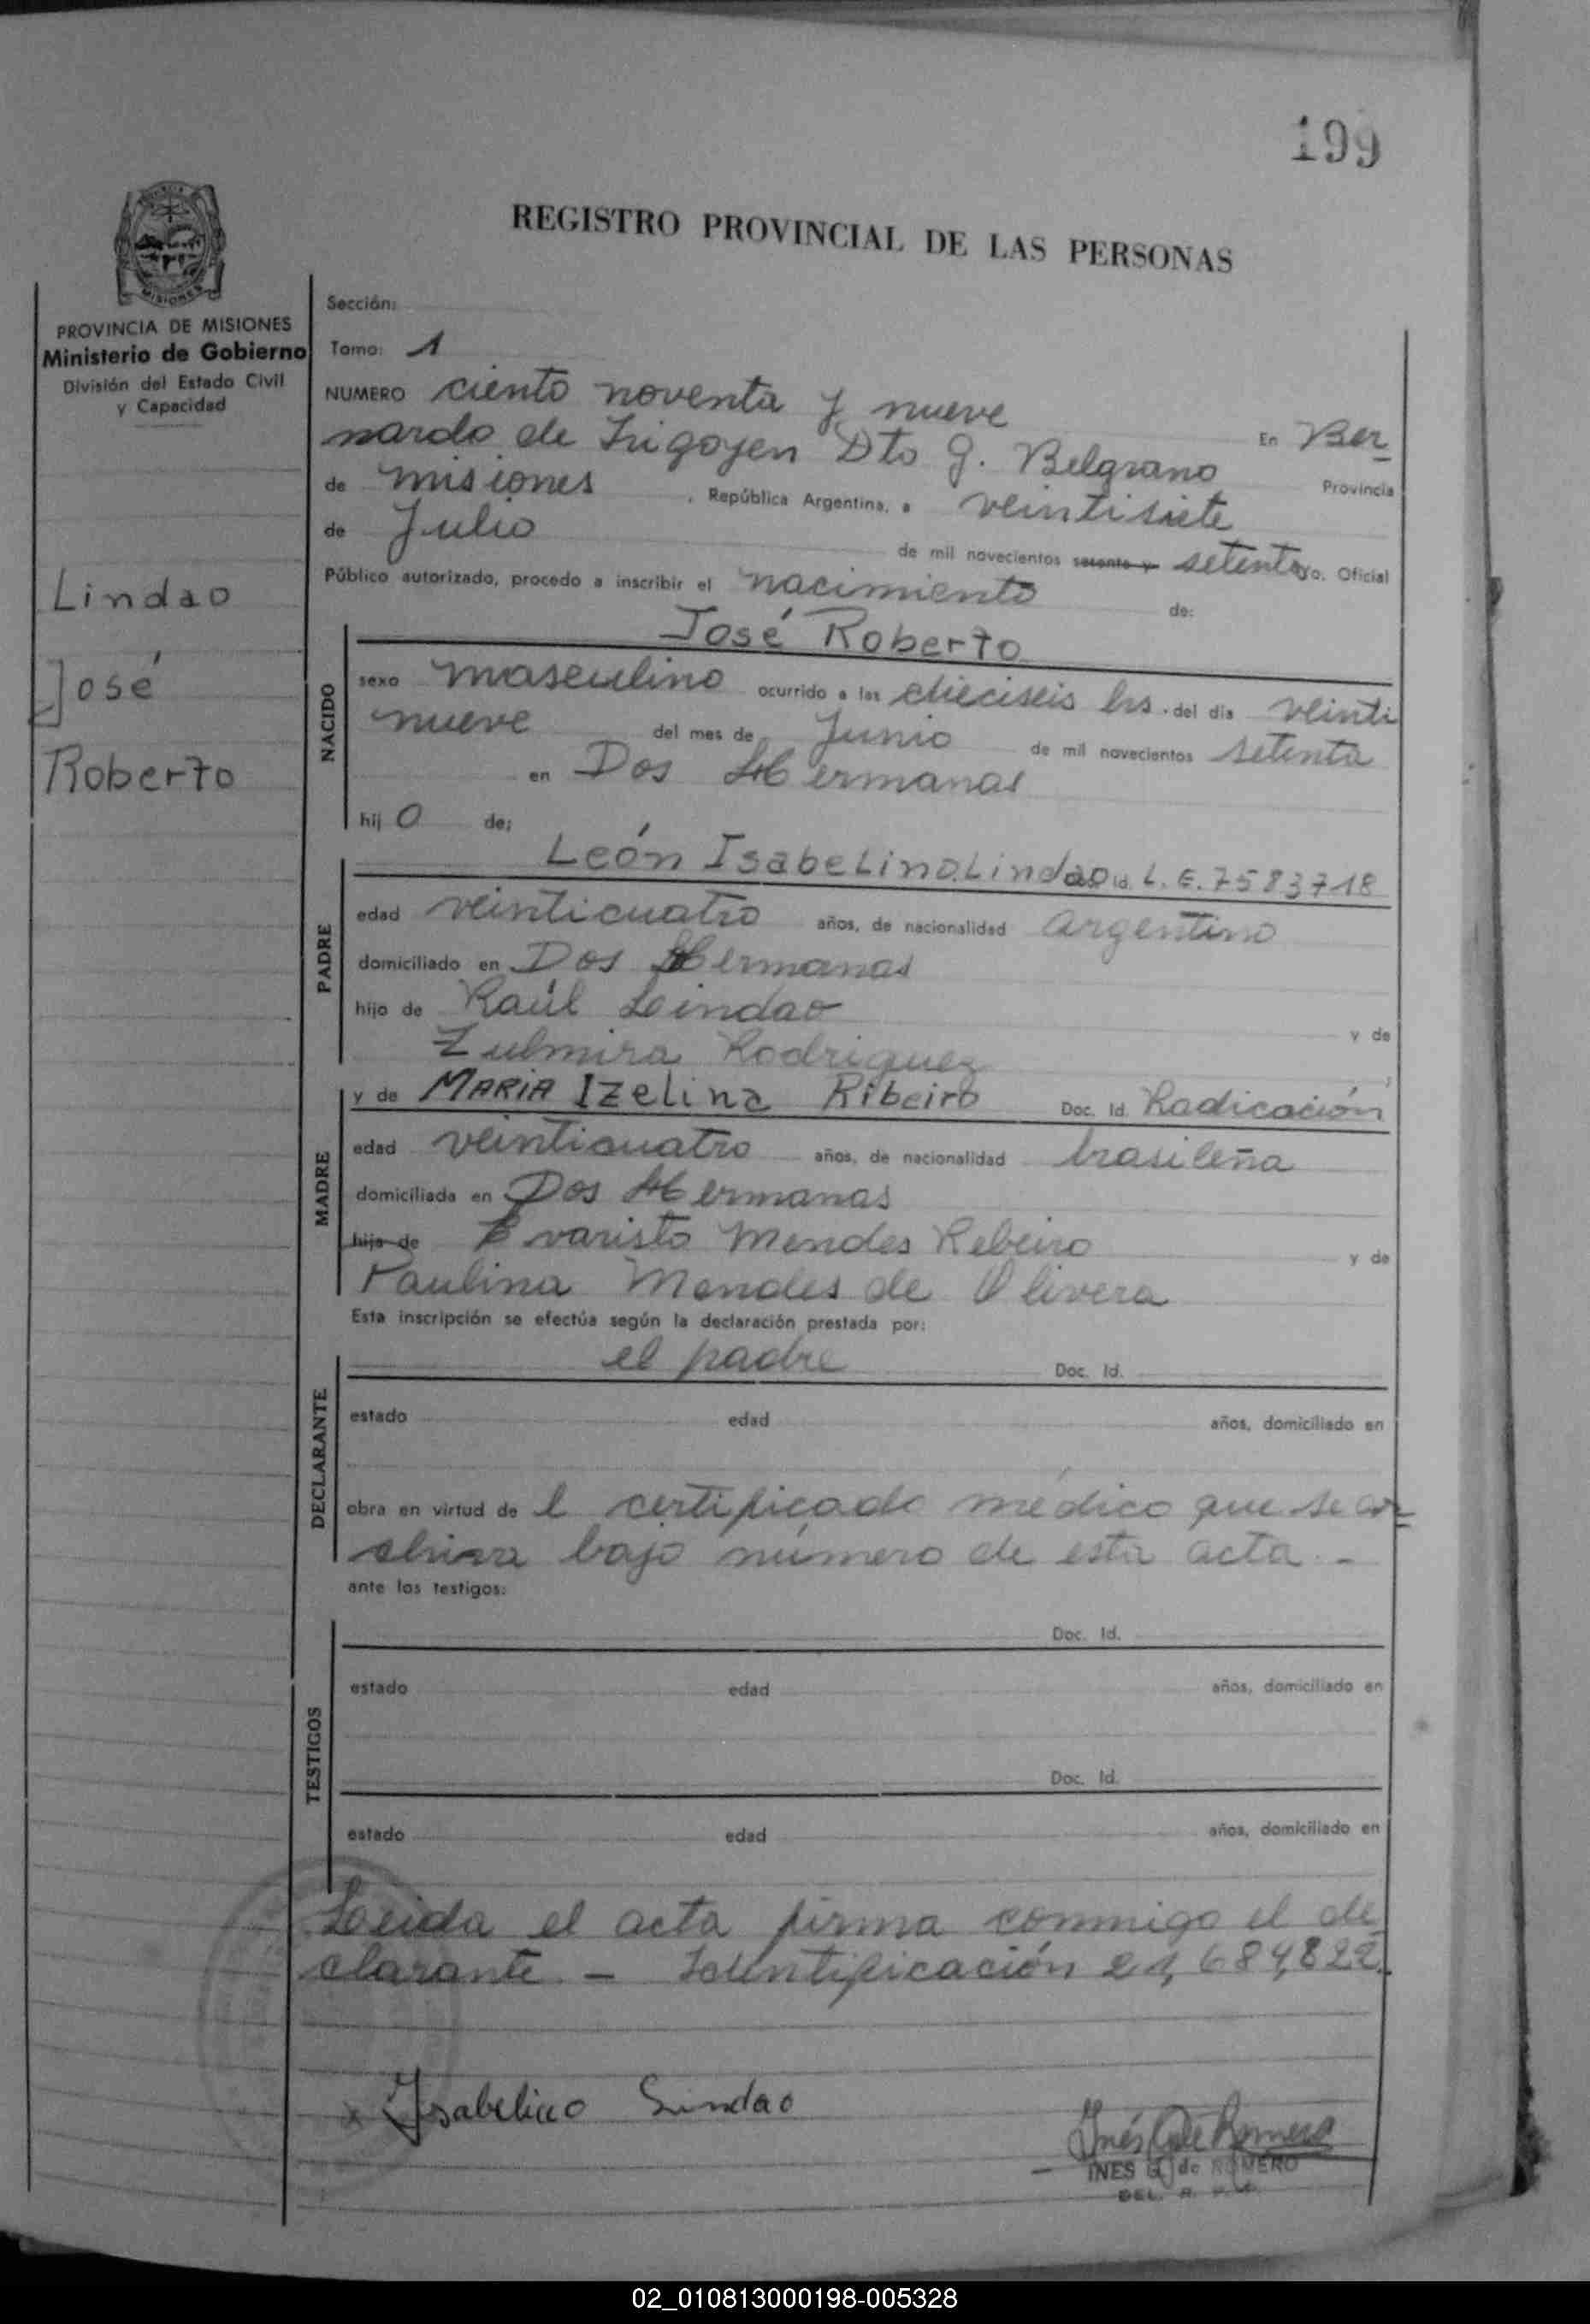 199
REGISTRO PROVINCIAL DE LAS PERSONAS
MISIONES
PROVINCIA DE MISIONES
Ministerio de Gobierno
División del Estado Civil
y Capacidad
Lindao
José
Roberto
Sección:
Tomo: 1
NUMERO ciento noventa y nueve En Ber
nardo de Irigoyen Dto G. Belgrano Provincia
de misiones, República Argentina, a veintisiete
de Julio de mil novecientos setenta y setenta yo. Oficial
Público autorizado, procedo a inscribir el nacimiento de:
NACIDO
José Roberto
sexo masculino ocurrido a las dieciseis hs. del día veinti
nueve del mes de Junio de mil novecientos setenta
en Dos Hermanas
hijo de;
PADRE
León Isabelino Lindao Id. L.E. 7583718
edad veinticuatro años, de nacionalidad argentino
domiciliado en Dos Hermanas
hijo de Raúl Lindao y de
Zulmira Rodriguez
MADRE
y de MARIA Izelina Ribeiro Doc. Id. Radicación
edad veinticuatro años, de nacionalidad brasileña
domiciliada en Dos Hermanas
hija de Evaristo Mendes Rebeiro y de
Paulina Mendes de Olivera
Esta inscripción se efectúa según la declaración prestada por:
DECLARANTE
el padre Doc. Id.
estado edad años, domiciliado en
obra en virtud de l certificado médico que se ar
chiva bajo número de esta acta.-
ante los testigos:
TESTIGOS
Doc. Id.
estado edad años, domiciliado en
Doc. Id.
estado edad años, domiciliado en
Leida el acta firma conmigo el de
clarante - Identificación 21,684,822.
x Isabelino Lindao
Inés G de Romero
INES G. de ROMERO
DEL. R. P. P.
02_010813000198-005328